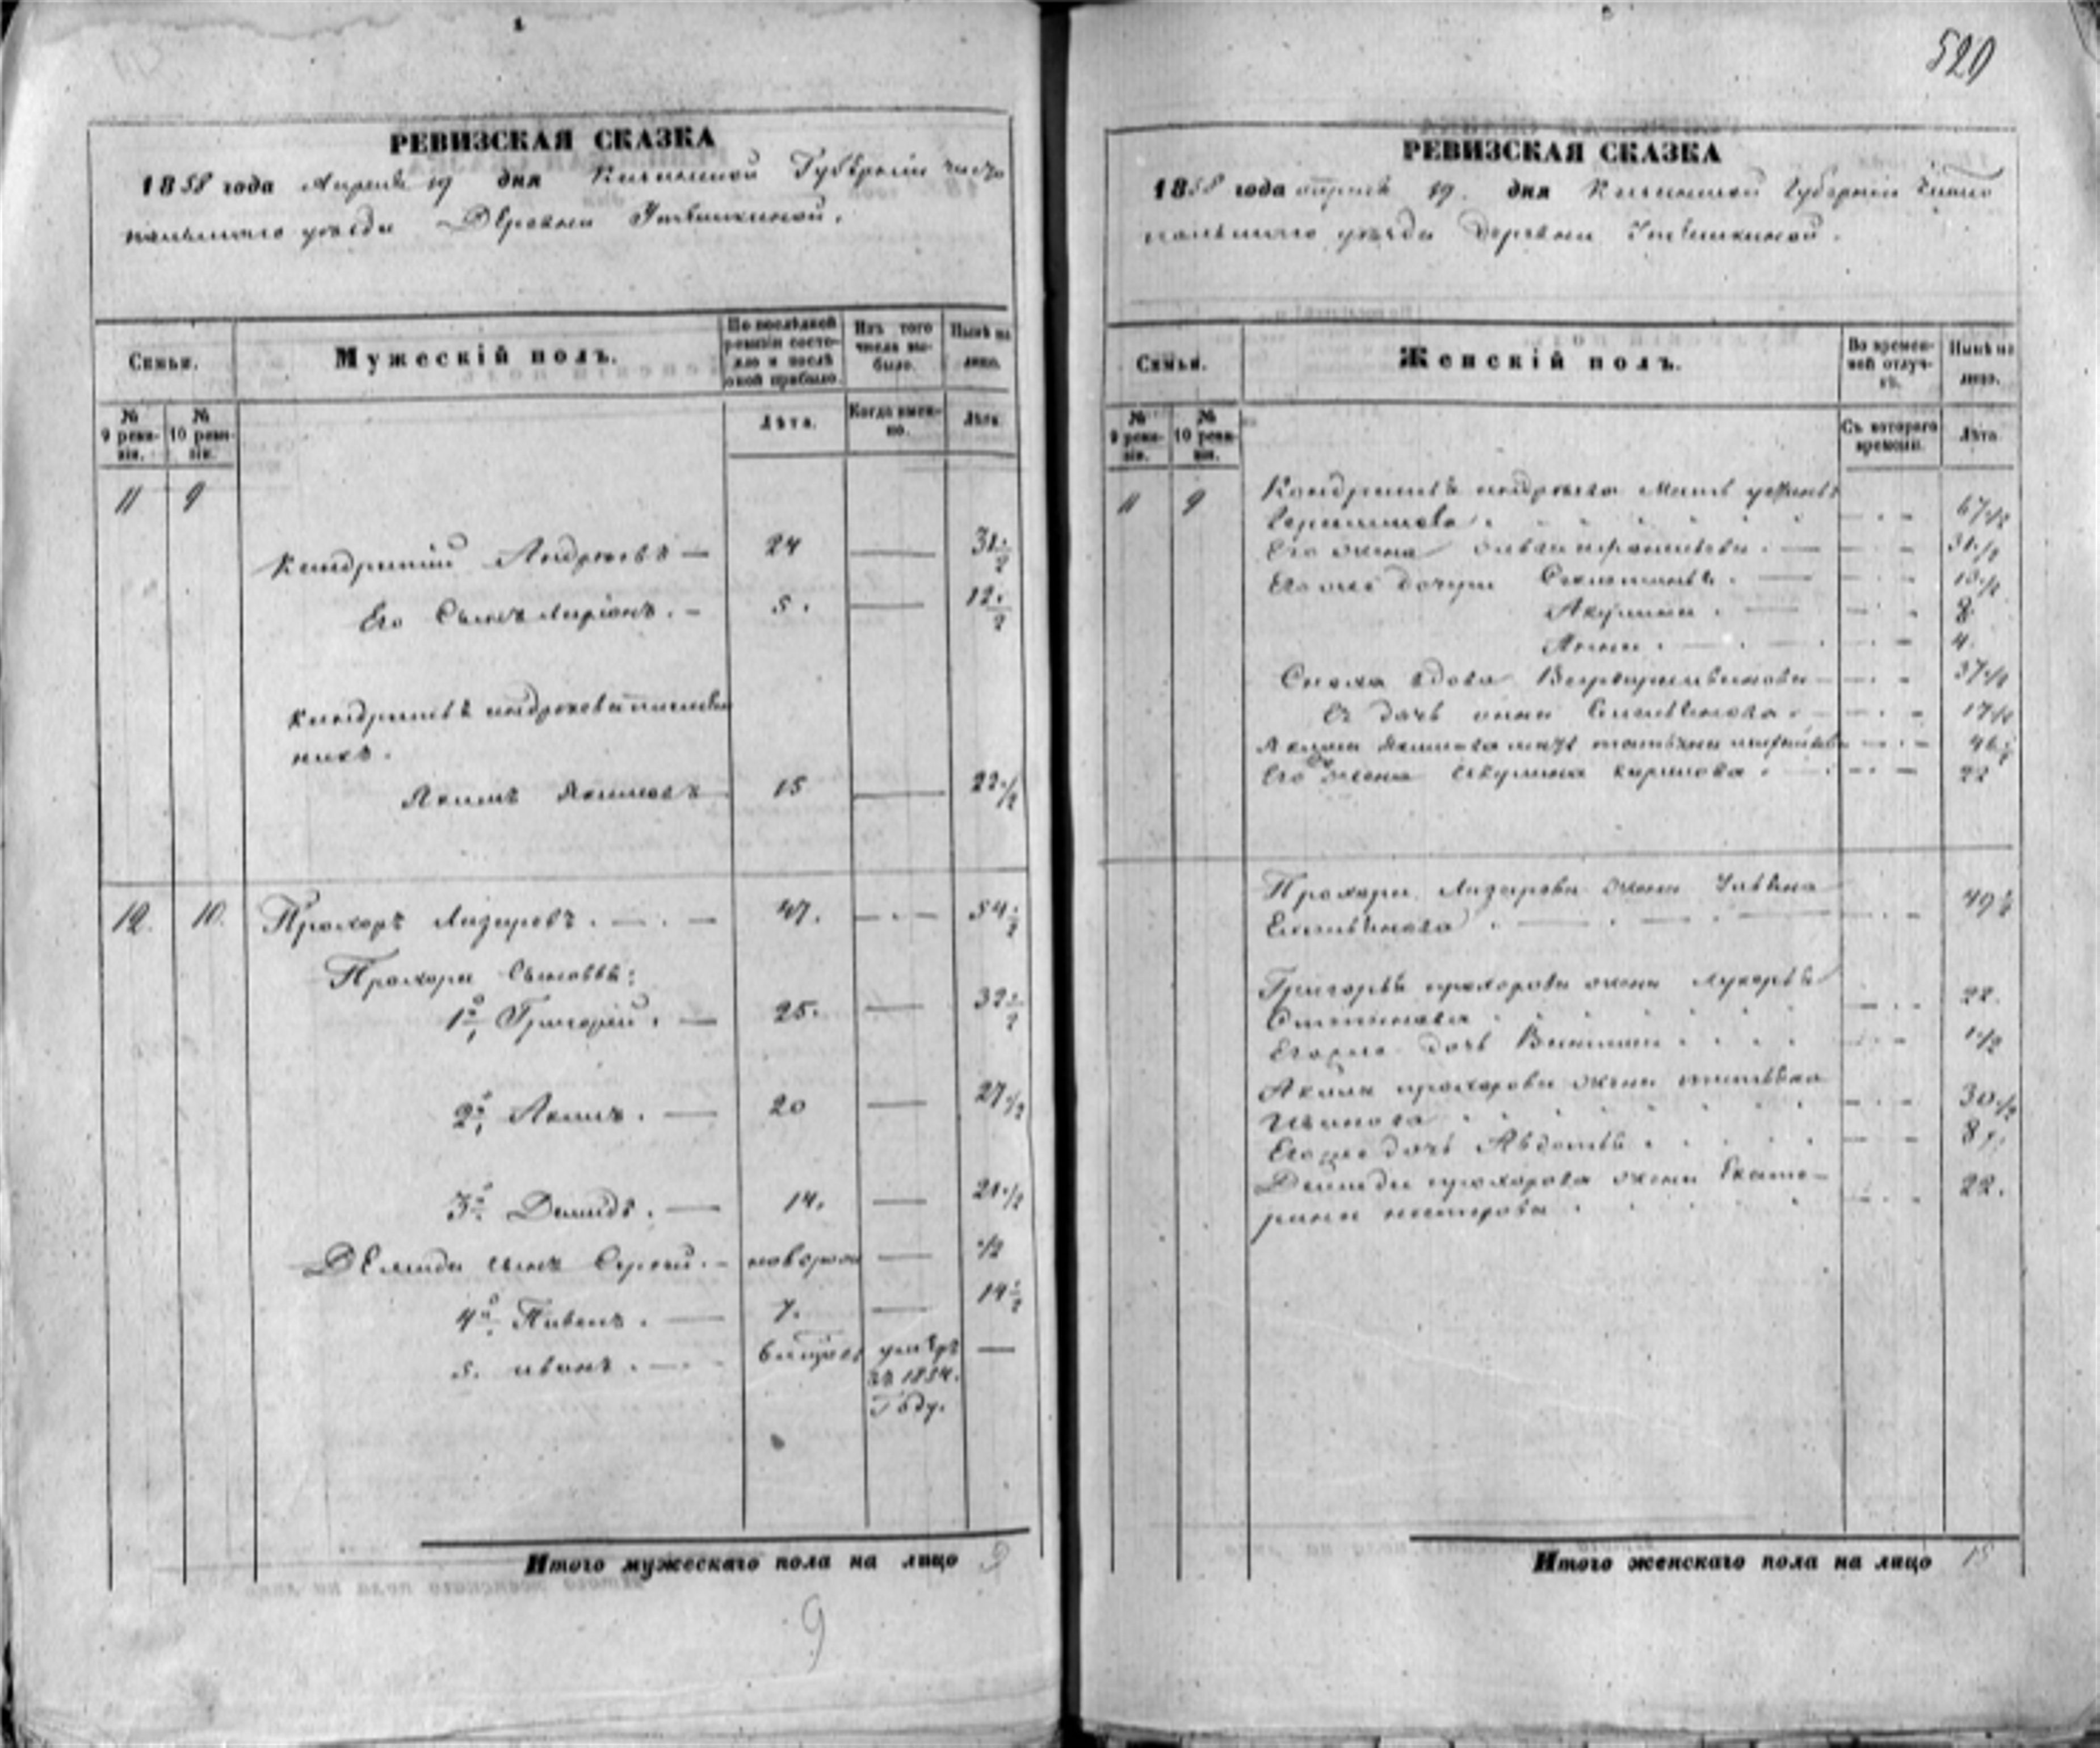 520
РЕВИЗСКАЯ СКАЗКА
1858 года Апреля 19 дня Казанской Губерніи Чисто
польскаго уѣзда Деревни
Семьи.
Мужескій полъ.
По послѣдней ревизіи состояло и послѣ оной прибыло.
Изъ того числа выбыло.
Нынѣ на лицо.
№ 9 ревизіи.
№ 10 ревизіи.
Лѣта.
Когда именно.
Лѣта.
11 9
Кондратій Андреевъ — 24 — 31 1/2
Его Сынъ Ларіонъ . — 5 . — 12 1/2
Кондратья Андреева племян
никъ .
Акимъ Акимовъ 15 — 22 1/2
12. 10. Прохоръ Лазаревъ . — . — 47. — . — 54 1/2
Прохора Сыновья:
1й Григорій . — 25. — 32 1/2
2й Акимъ . — 20 — 27 1/2
3й Демидъ . — 14. — 21 1/2
Демида сынъ Сергей . — новорож — 1/2
4й Павелъ . — 7. — 14 1/2
5. иванъ . — умеръ —
въ 1854.
Году.
Итого мужескаго пола на лицо 9
9
РЕВИЗСКАЯ СКАЗКА
1858 года апреля 19. дня Казанской Губерніи Чисто
польскаго уѣзда Деревни
Семьи.
Женскій полъ.
Во временной отлучкѣ.
Нынѣ на лицо.
№ 9 ревизіи.
№ 10 ревизіи.
Съ котораго времени.
Лѣта
11 9 Кондратья андреева Мать
67 1/2
Его жена 31 1/2
Его же дочери 13 1/2
Акулина . — 8.
Анна . — 4.
Сноха вдова Варвара 37 1/2
Ея дочь анна 17 1/2
Акима Акимова мать татьяна 46 1/2
Его жена акулина кирилова . 22
Прохора Лазарева жена Ульяна
Емельянова . 49 1/2
Григорья прохорова жена Лукерья
Степанова 22.
Его же дочь 1 1/2
Акима прохорова жена татьяна
Иванова 30 1/2
Его же дочь Авдотья . 8
Демида прохорова жена Екате-
рина 22.
Итого женскаго пола на лицо 15